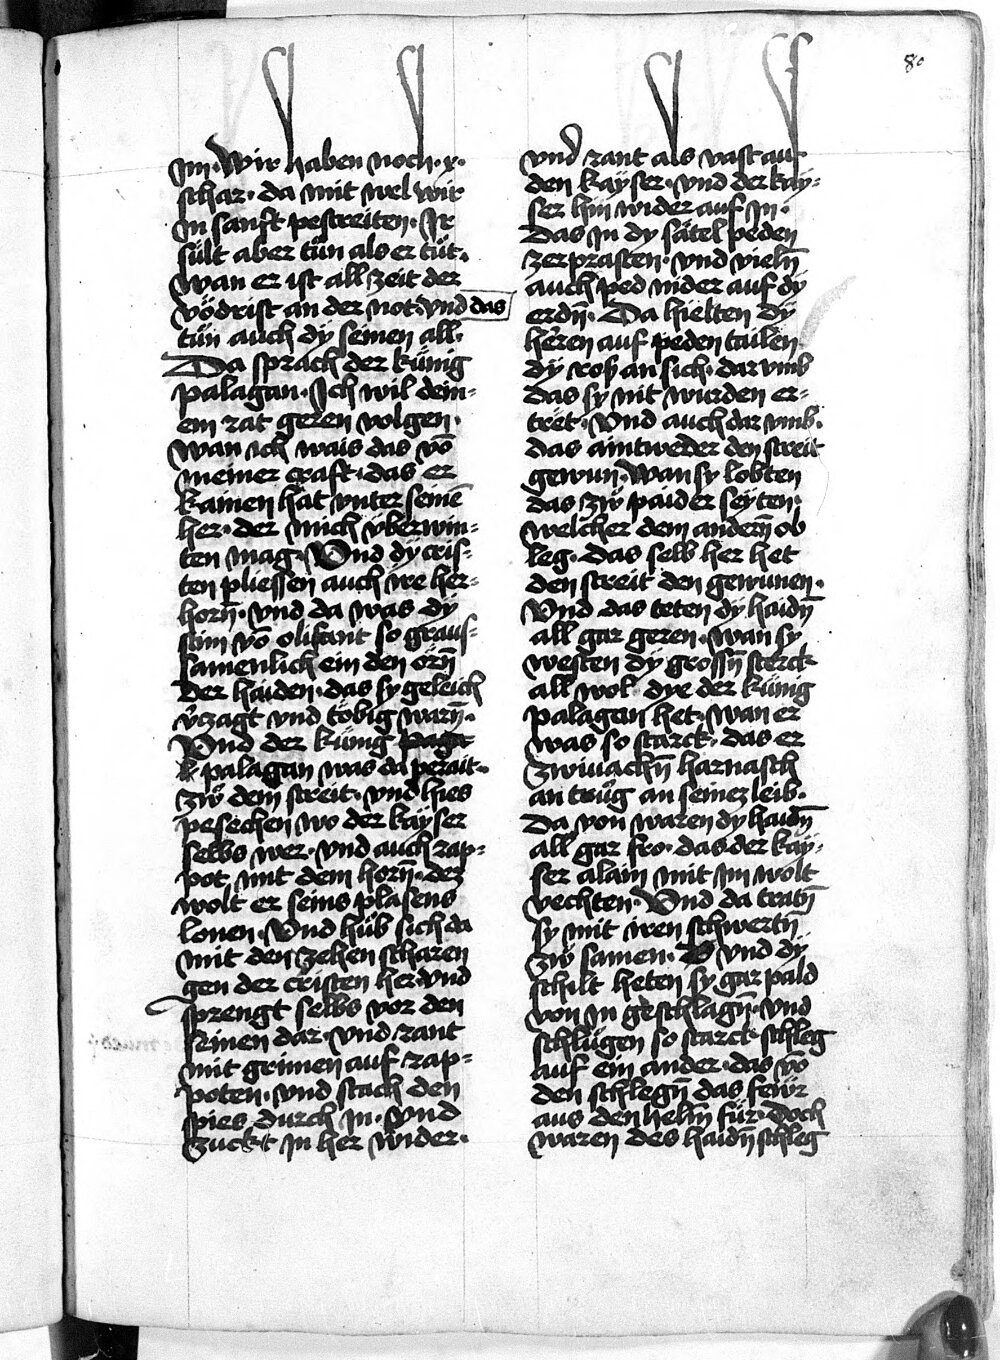 80
im · Wir haben noch · x ·
schar · da mit wel wir
in sanft pestreiten · Ir
sült aber tün als er tüt ·
wan er ist all zeit der
vödrist an der not · vnd das
tün auch dÿ seinen all ·
Da sprach der künig
palagan · Ich wil dein-
em rat geren volgen ·
wan ich wais das vō
meiner craft · das er
kainen hat vnter seinē
her · der mich vberwin-
ten mag · Vnd dÿ cris-
ten pliessen auch ire her-
horn̄ · vnd da was dy
stim vō olifant so graus-
samenlich ein den orn̄
der haiden · das sy geleich
v̄zagt vnd töbig warn̄ ·
Vnd der künig
palagan was da perait ·
zw dem streit · vnd hies
pesechen wo der kayser
selbs wer · vnd auch rap-
pot mit dem horn̄ · der
wolt er seins plasens
lonen · Vnd hüb sich da
mit den zehen scharen
gen der cristen her · vnd
sprengt selbs vor den
seinen dar · vnd rant
mit grimen auf rap-
poten · vnd stach den
spies durch in · vnd
zuckt in her wider ·
vnd rant als vast auf
den kayser · vnd der kay-
ser hin wider auf in ·
Das in dy sätel peden
zerprasten · vnd vieln̄
auch ped nider auf dy
erdn̄ · Da hielten dÿ
heren auf peden tailen
dÿ ros an sich · dar vmb
das sy nit wurden er-
tret · Vnd auch dar vmb ·
das aintweder den streit
gewun · Wan sy lobten
das zw paider seyten ·
welcher dem andern̄ ob
leg · das selb her het
den streit den gewunen ·
Vnd das teten dy haidn̄
all gar geren · wan sy
westen dy grossn̄ sterck
all wol · dye der künig
palagan het · wan er
was so starck · das er
zwiuachn̄ harnasch
an trüg an seinez leib ·
Da von waren dy haidn̄
all gar fro · das der kay-
ser alain mit im wolt
vechten · Vnd da tratn̄
sy mit iren schwertn̄
zw samen · vnd dÿ
schilt heten sy gar pald
von in geschlagn̄ · vnd
schlügen so starck schleg
auf ein ander · das vō
den schlegn̄ das feuir
aus den helm̄ für · Doch
waren des haidn̄ schleg